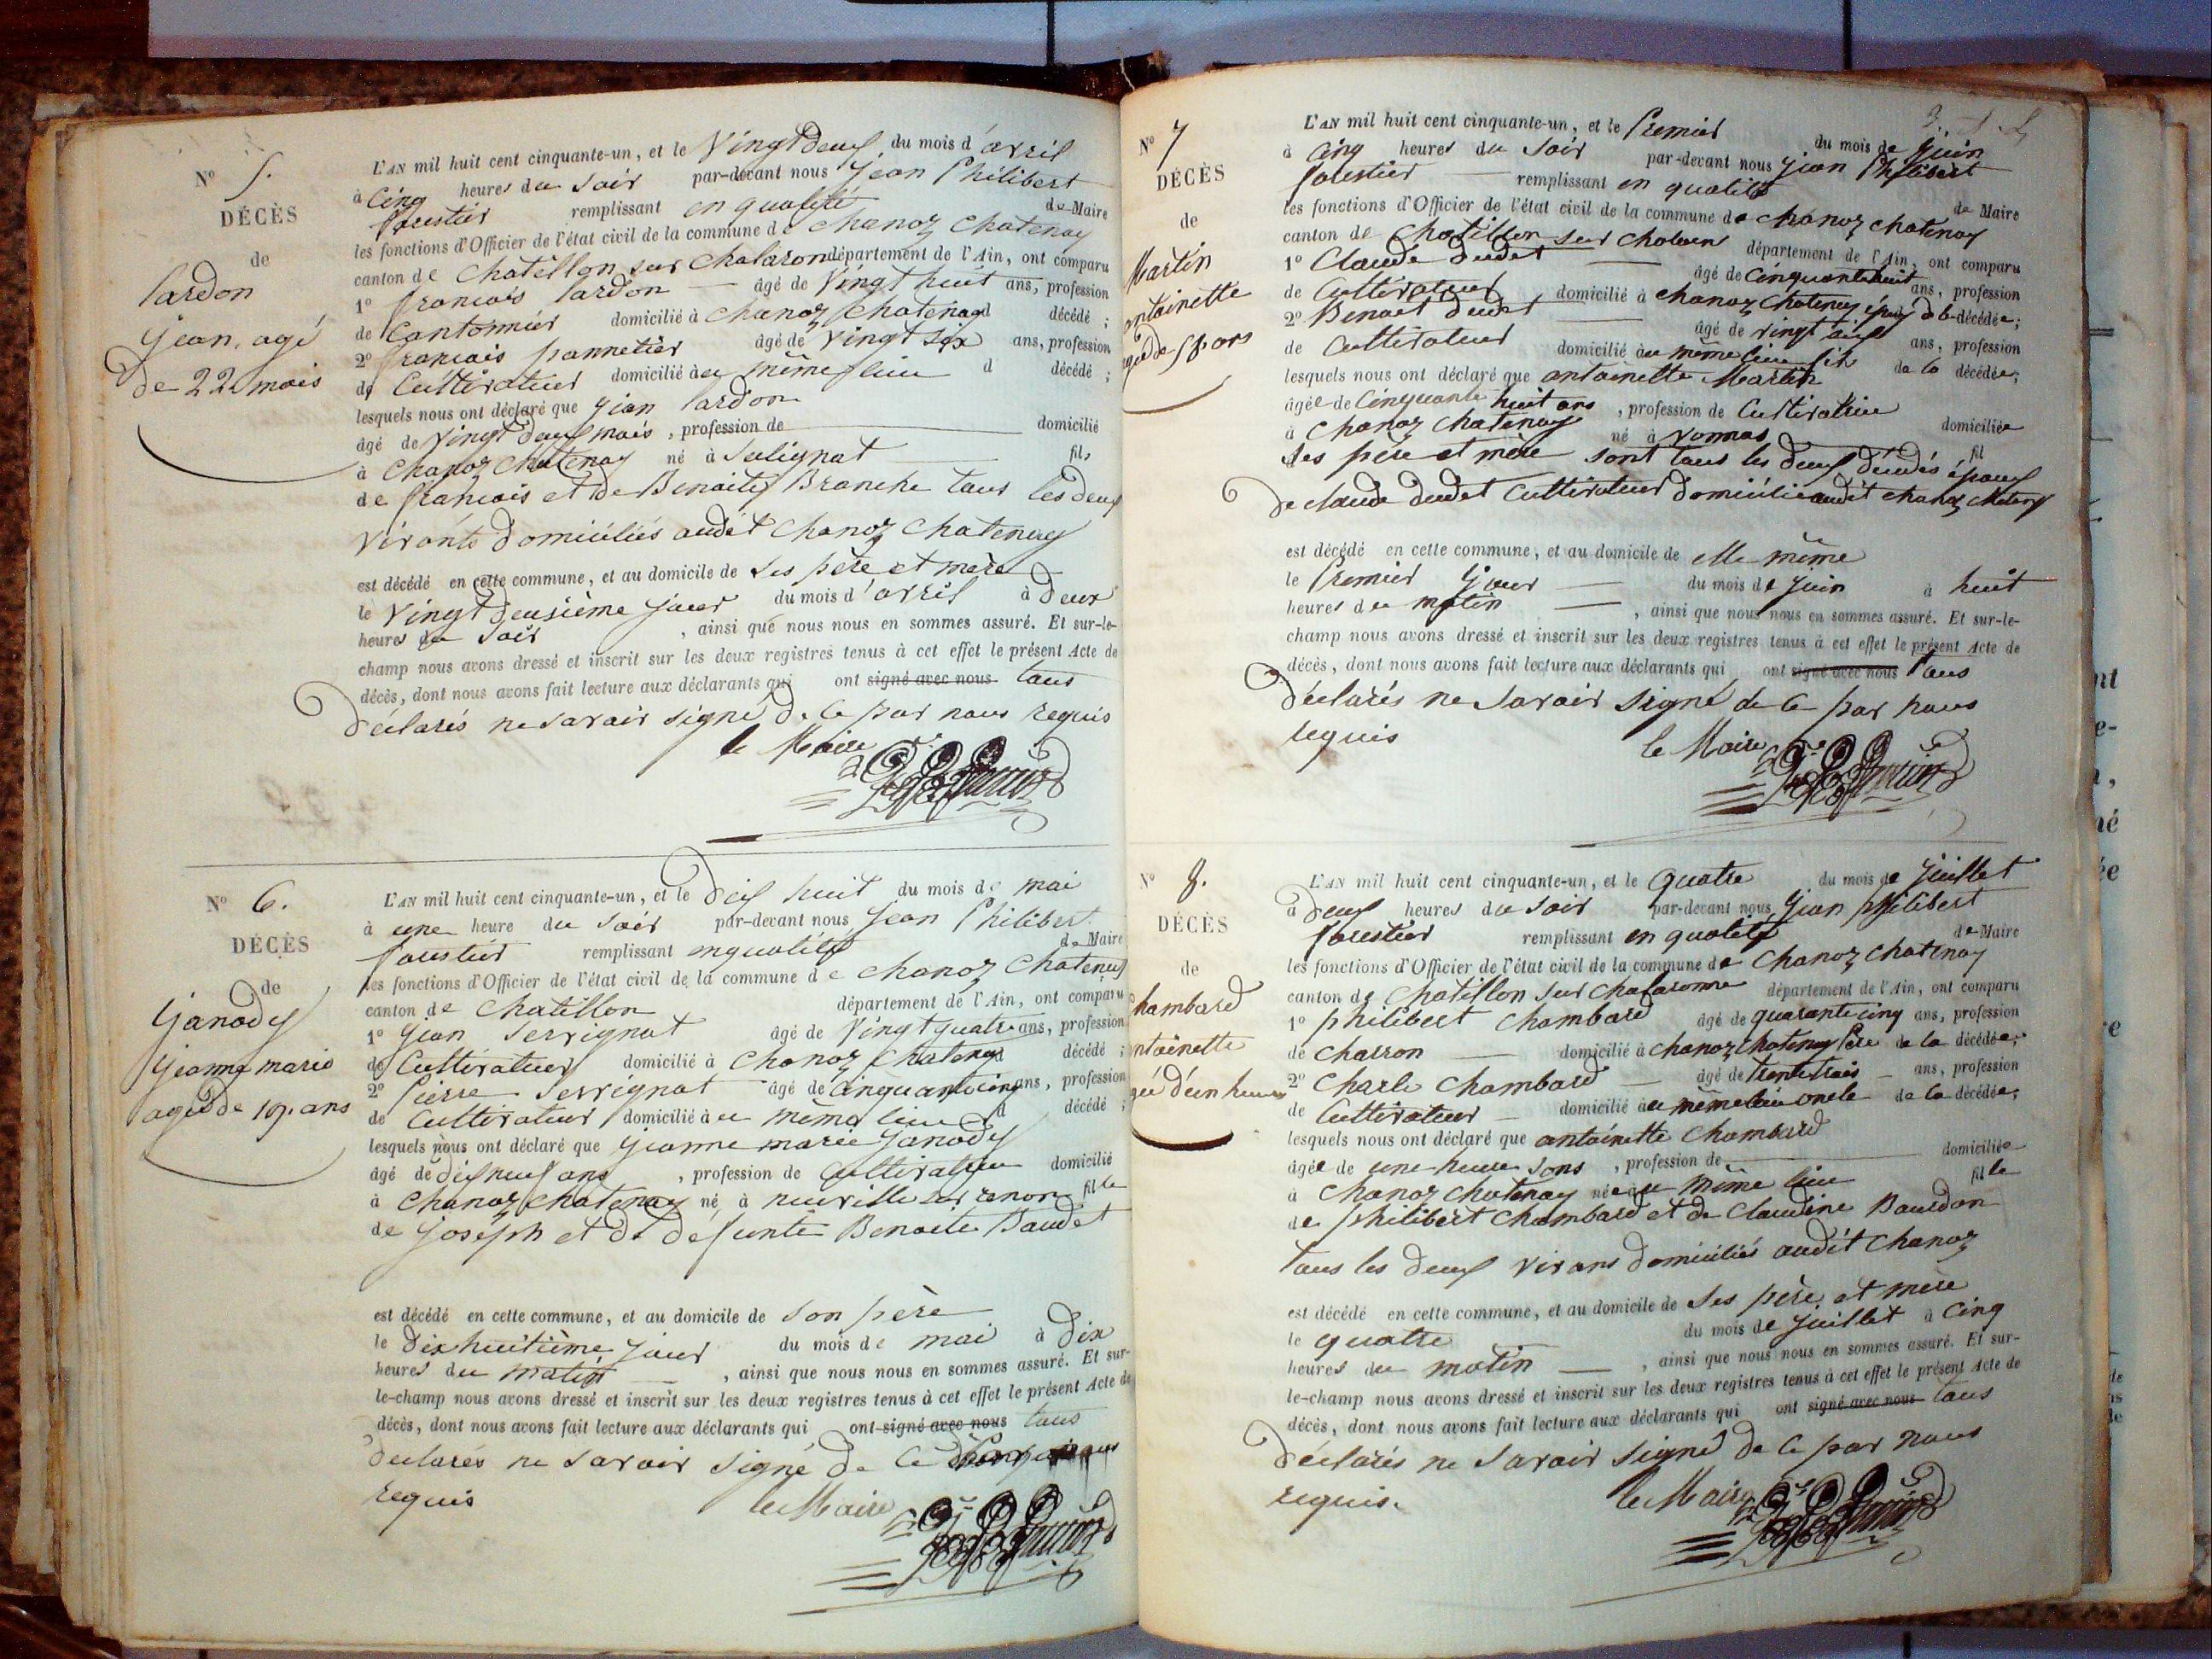 N° 5.
DÉCÈS
de
Pardon
Jean, agé
de 22 mois
L'AN mil huit cent cinquante-un, et le Vingt deux du mois d'avril
à Cinq heures du Soir par-devant nous Jean Philibert
forestier remplissant en qualité de Maire
les fonctions d'Officier de l'état civil de la commune de Chanoz Chatenay
canton de Chatillon sur Chalaron département de l'Ain, ont comparu
1° francois Pardon âgé de Vingt huit ans, profession
de Cantonnier domicilié à Chanoz Chatenay d décédé ;
2° francais pannetier âgé de Vingt six ans, profession
de Cultivateur domicilié au même lieu d décédé ;
lesquels nous ont déclaré que Jean Pardon
âgé de Vingt deux mois, profession de domicilié
à Chanoz Chatenay né à Sulignat fils
de francois et de Benoite Branche tous les deux
vivants domiciliés audit Chanoz Chatenay
est décédé en cette commune, et au domicile de Ses père et mère
le Vingt deusième jour du mois d'avril à deux
heures du Soir, ainsi que nous nous en sommes assuré. Et sur-le-
champ nous avons dressé et inscrit sur les deux registres tenus à cet effet le présent Acte de
décès, dont nous avons fait lecture aux déclarants qui ont signé avec nous tous
déclarés ne Savoir signé de ce par nous requis
le Maire
N° 6.
DÉCÈS
de
Janody
Jeanne marie
agée de 19. ans
L'AN mil huit cent cinquante-un, et le dix huit du mois de mai
à une heure du Soir par-devant nous Jean Philibert
forestier remplissant en qualité de Maire
les fonctions d'Officier de l'état civil de la commune de Chanoz Chatenay
canton de Chatillon département de l'Ain, ont comparu
1° Jean Servignat âgé de Vingt quatre ans, profession
de Cultivateur domicilié à Chanoz Chatenay d décédé ;
2° Pierre Servignat âgé de Cinquante cinq ans, profession
de Cultivateur domicilié au même lieu d décédé ;
lesquels nous ont déclaré que Jeanne marie Janody
âgé de dix neuf ans, profession de Cultivatrice domicilié
à Chanoz Chatenay né à neuville sur renon fille
de Joseph et de defunte Benoite Baudet
est décédé en cette commune, et au domicile de Son père
le Dix huitième jour du mois de mai à Dix
heures du matin, ainsi que nous nous en sommes assuré. Et sur-
le-champ nous avons dressé et inscrit sur les deux registres tenus à cet effet le présent Acte de
décès, dont nous avons fait lecture aux déclarants qui ont signé avec nous tous
déclarés ne Savoir signé de ce
requis le Maire
N° 7
DÉCÈS
de
Martin
antoinette
agée de 58 ans
L'AN mil huit cent cinquante-un, et le Premier du mois de Juin
à Cinq heures du Soir par-devant nous Jean Philibert
forestier remplissant en qualité de Maire
les fonctions d'Officier de l'état civil de la commune de Chanoz Chatenay
canton de Chatillon sur Chalaron département de l'Ain, ont comparu
1° Claude dudet âgé de Cinquante huit ans, profession
de Cultivateur domicilié à Chanoz Chatenay époux de la décédée;
2° Benoit dudet âgé de vingt six ans, profession
de Cultivateur domicilié au même lieu fils de la décédée;
lesquels nous ont déclaré que antoinette Martin
âgée de Cinquante huit ans, profession de Cultivatrice domiciliée
à Chanoz Chatenay né à vonnas fil
Ses père et mère sont tous les deux décédés épouse
de claude dudet Cultivateur domicilié audit chanoz chatenay
est décédé en cette commune, et au domicile de elle même
le Premier Jour du mois de Juin à huit
heures du matin, ainsi que nous nous en sommes assuré. Et sur-le-
champ nous avons dressé et inscrit sur les deux registres tenus à cet effet le présent Acte de
décès, dont nous avons fait lecture aux déclarants qui ont signé avec nous tous
déclarés ne Savoir signé de ce par nous
requis le Maire
N° 8.
DÉCÈS
de
hambard
ntoinette
gée d'un heure
L'AN mil huit cent cinquante-un, et le quatre du mois de Juillet
à deux heures du Soir par-devant nous Jean philibert
forestier remplissant en qualité de Maire
les fonctions d'Officier de l'état civil de la commune de Chanoz Chatenay
canton de Chatillon sur Chalaronne département de l'Ain, ont comparu
1° philibert Chambard âgé de quarante cinq ans, profession
de charron domicilié à Chanoz Chatenay Père de la décédée;
2° Charle Chambard âgé de trente trois ans, profession
de Cultivateur domicilié au même lieu oncle de la décédée;
lesquels nous ont déclaré que antoinette Chambard
âgée de une heure, profession de domiciliée
à Chanoz Chatenay née au même lieu fille
de philibert Chambard et de Claudine Bourdon
tous les deux vivans domiciliés audit Chanoz
est décédé en cette commune, et au domicile de Ses père et mère
le quatre du mois de Juillet à Cinq
heures du matin, ainsi que nous nous en sommes assuré. Et sur-
le-champ nous avons dressé et inscrit sur les deux registres tenus à cet effet le présent Acte de
décès, dont nous avons fait lecture aux déclarants qui ont signé avec nous tous
déclarés ne Savoir signé de ce par nous
requis. le Maire